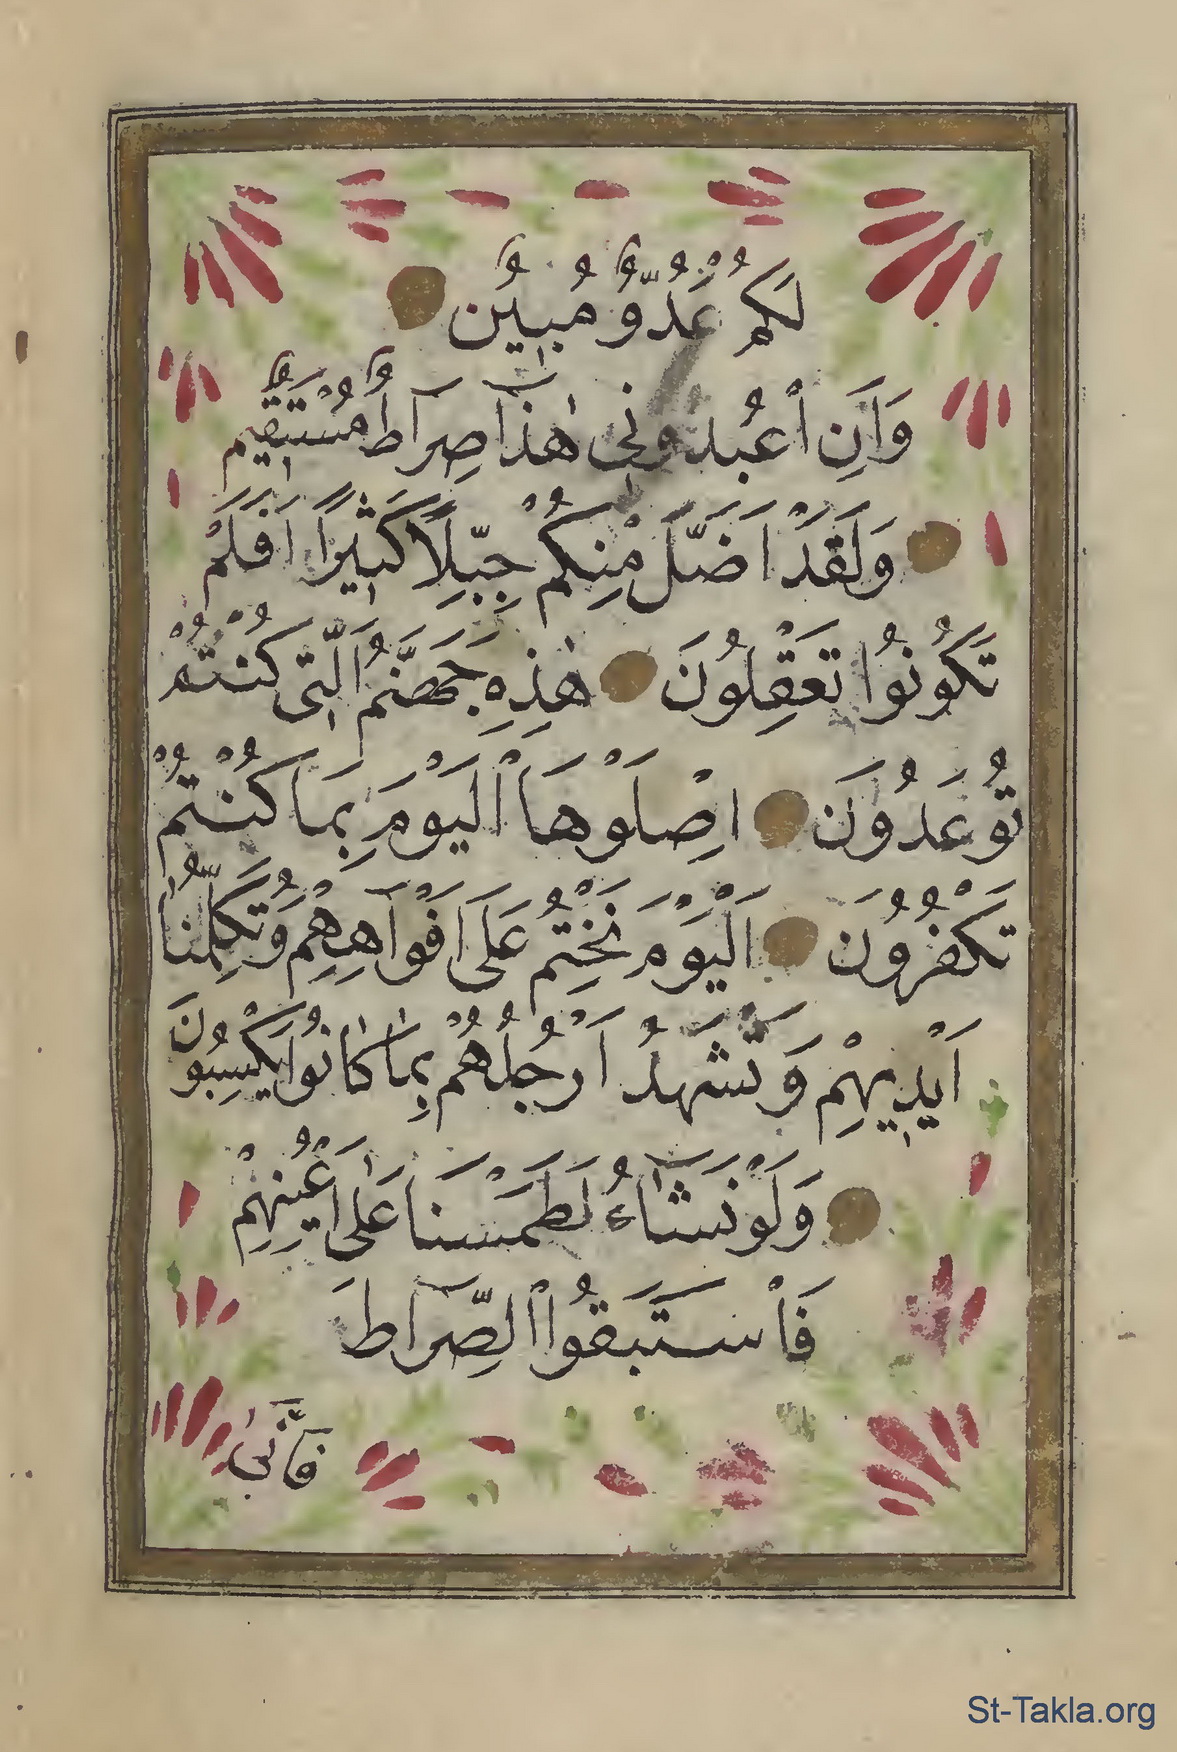 لَكُمْ عَدُوٌّ مُبِينٌ
وَاَنِ اْعْبُدُونِى هٰذَا صِرَاطٌ مُسْتَقِيمٌ
وَلَقَدْ اَضَلَّ مِنْكُمْ جِبِلّاً كَثِيرًا اَفَلَمْ
تَكُونُوا تَعْقِلُونَ هٰذِهِ جَهَنَّمُ الَّتِى كُنْتُمْ
تُوعَدُونَ اِصْلَوْهَا اْليَوْمَ بِمَا كُنْتُمْ
تَكْفُرُونَ اَلْيَوْمَ نَخْتِمُ عَلَى اَفْوَاهِهِمْ وَتُكَلِّمُنَا
اَيْدِيهِمْ وَتَشْهَدُ اَرْجُلُهُمْ بِمَا كَانُوا يَكْسِبُونَ
وَلَوْ نَشَآءُ لَطَمَسْنَا عَلٰى اَعْيُنِهِمْ
فَاْسْتَبَقُوا اْلصِّرَاطَ
فَاَنّٰى
St-Takla.org